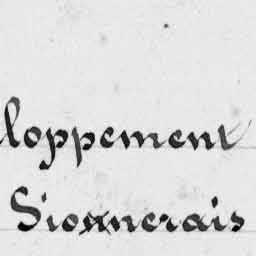 loppement
Sionnerais